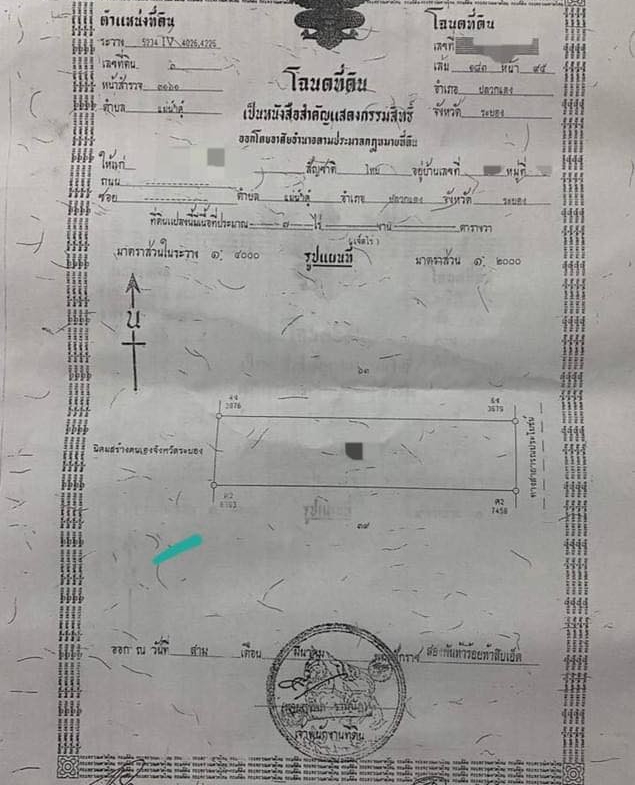 ตำแหน่งที่ดิน
ระวาง 5234 IV 4026,4226
เลขที่ดิน ๖
หน้าสำรวจ ๓๑๖๑
ตำบล แม่น้ำคู้
โฉนดที่ดิน
เลขที่
เล่ม ๑๘๓ หน้า ๙๕
อำเภอ ปลวกแดง
จังหวัด ระยอง
โฉนดที่ดิน
เป็นหนังสือสำคัญแสดงกรรมสิทธิ์
ออกโดยอาศัยอำนาจตามประมวลกฎหมายที่ดิน
ให้แก่ สัญชาติ ไทย อยู่บ้านเลขที่ หมู่ที่
ถนน
ซอย ตำบล แม่น้ำคู้ อำเภอ ปลวกแดง จังหวัด ระยอง
ที่ดินแปลงนี้มีเนื้อที่ประมาณ ๗ ไร่ งาน ตารางวา
(เจ็ดไร่)
มาตราส่วนในระวาง ๑: ๔๐๐๐
รูปแผนที่
มาตราส่วน ๑: ๒๐๐๐
น
๖๓
3679
นิคมสร้างตนเองจังหวัดระยอง
ทางสาธารณประโยชน์
ค2
ค2
7458
๓๙
ออก ณ วันที่ สาม เดือน มีนาคม พุทธศักราช สองพันห้าร้อยห้าสิบเอ็ด
เจ้าพนักงานที่ดิน